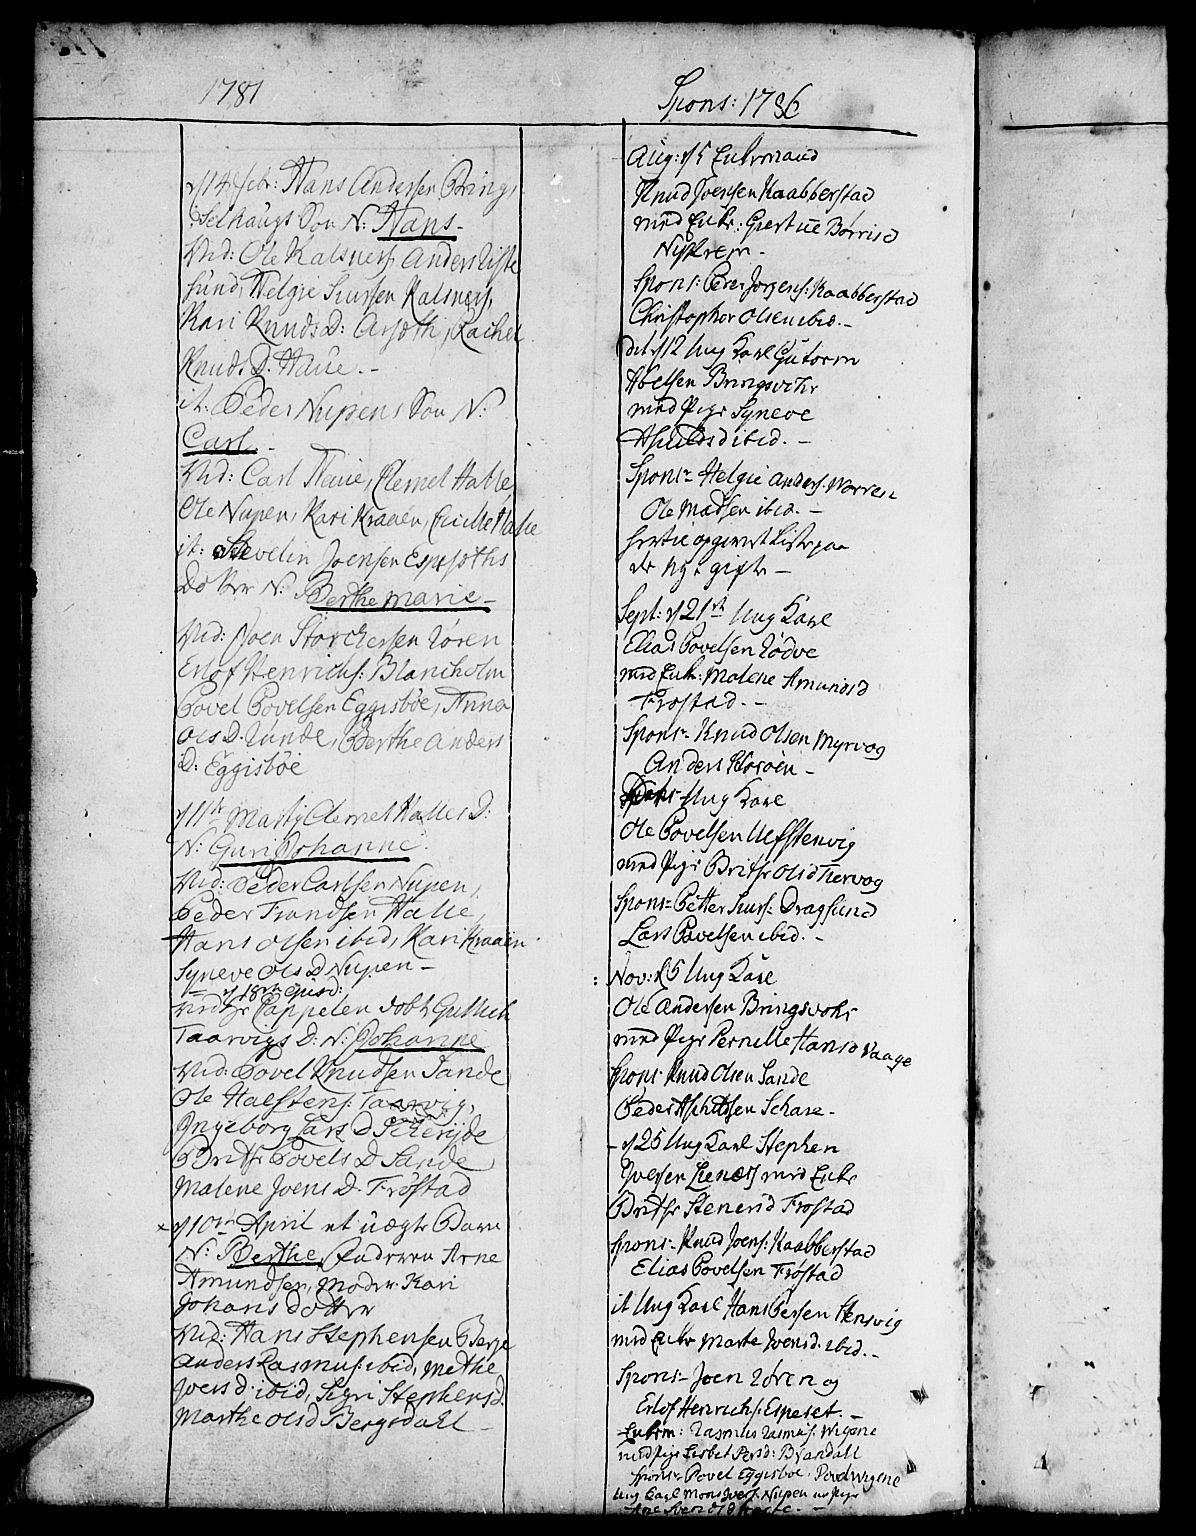 1781
d 14 Febr: Hans Andersen Brings,
Selhaugs Søn N: Hans.
Vid: Ole Kalsnes, Anders Liste
sund, Helgie Siursen Kalsnes,
Kari Knuds D: Aarsøth, Rachel
Knuds D. Haue.-
it: Peder Nupens Søn N:
Carl.-
Vid: Carl Haue, Clemet Halle,
Ole Nupen, Kari Kraaen, Cicille Halle
it: Stevelin Joensen Espesøths
Dotter N: Berthe Marie-
Vid: Joen Storchersen Røren
Erlof Henrichs: Blancholm
Povel Povelsen Eggisböe, Anna
Ols D. Runde, Berthe Anders
D: Eggisböe
d 11te Martj Clemet Halles D:
N: Guri Johanne.
Vid: Peder Carlsen Nupen,
Peder Frandsen Halle,
Hans Olsen ibid, Kari Kraaen
Syneve Ols D Nupen-
d 18de ejusd:
Hr Cappelen døbt Gullich
Taarvigs D: N: Johanne
Vid: Povel Knudsen Sande
Ole Halfstens: Taarvig,
Ingeborg Lars D
Brithe Povels D Sande
Malene Joens D. Frøstad
d 10de April et uægte Barn
N: Berthe, Faderen Arne
Amundsen, Moder Kari
Johans Dotter
Vid: Hans Stephensen Berge
Anders Rasmus: ibid, Methe
Joens d: ibid, Sigri Stephensd.
Marthe Olsd Bergsdahl-
Spons: 1786
Aug: d 5 Enkemand
Knud Joensen Kaabberstad
med Enke: Giertrue Børrisd
Nystrem-
Spons: Peder Jørgens: Kaabberstad
Christopher Olsen ibid.-
dit d 12 Ung Karl Gutorm
Abelsen Bringsvohr
med Pige Syneve
Asfieldsd ibid.-
Spons- Helgie Anders: Worren
Ole Madsen ibid.-
hertil opgivet Liste paa
de ny gifte-
Sept: d 21de Ung Karl
Elias Povelsen Rødve
med Enke: Malene Amundsd
Frøstad.-
Spons- Knud Olsen Myrvog
Anders Horøen-
Ung Karl
Ole Povelsen Ulfstenvig
med Pige Brithe Olsd Tiervog
Spons- Petter Siurs: Dragsund
Lars Povelsen ibid.-
Nov: d 5 Ung Karl
Ole Andersen Bringsvohr
med Pige Pernille Hansd Vaage
Spons- Knud Olsen Sande
Peder Aschildsen Schare-
- d 25 Ung Karl Stephen
Iversen Lenæs med Enke
Brithe Stenersd Frøstad
Spons- Knud Joens: Kaabberstad
Elias Povelsen Frøstad
it Ung Karl Hans Persen Stensvig
med Enke Marte Joensd: ibid.-
Spons- Joen Røren og
Erlof Henrichs: Espeset.-
Enkem: Rasmus Rasmus: Wigene
med Pige Lisbet Persd: Brandall
Spons- Povel Eggisboe, Povel Wigene
Ung Carl Mons Ivers: Nupen m Pige